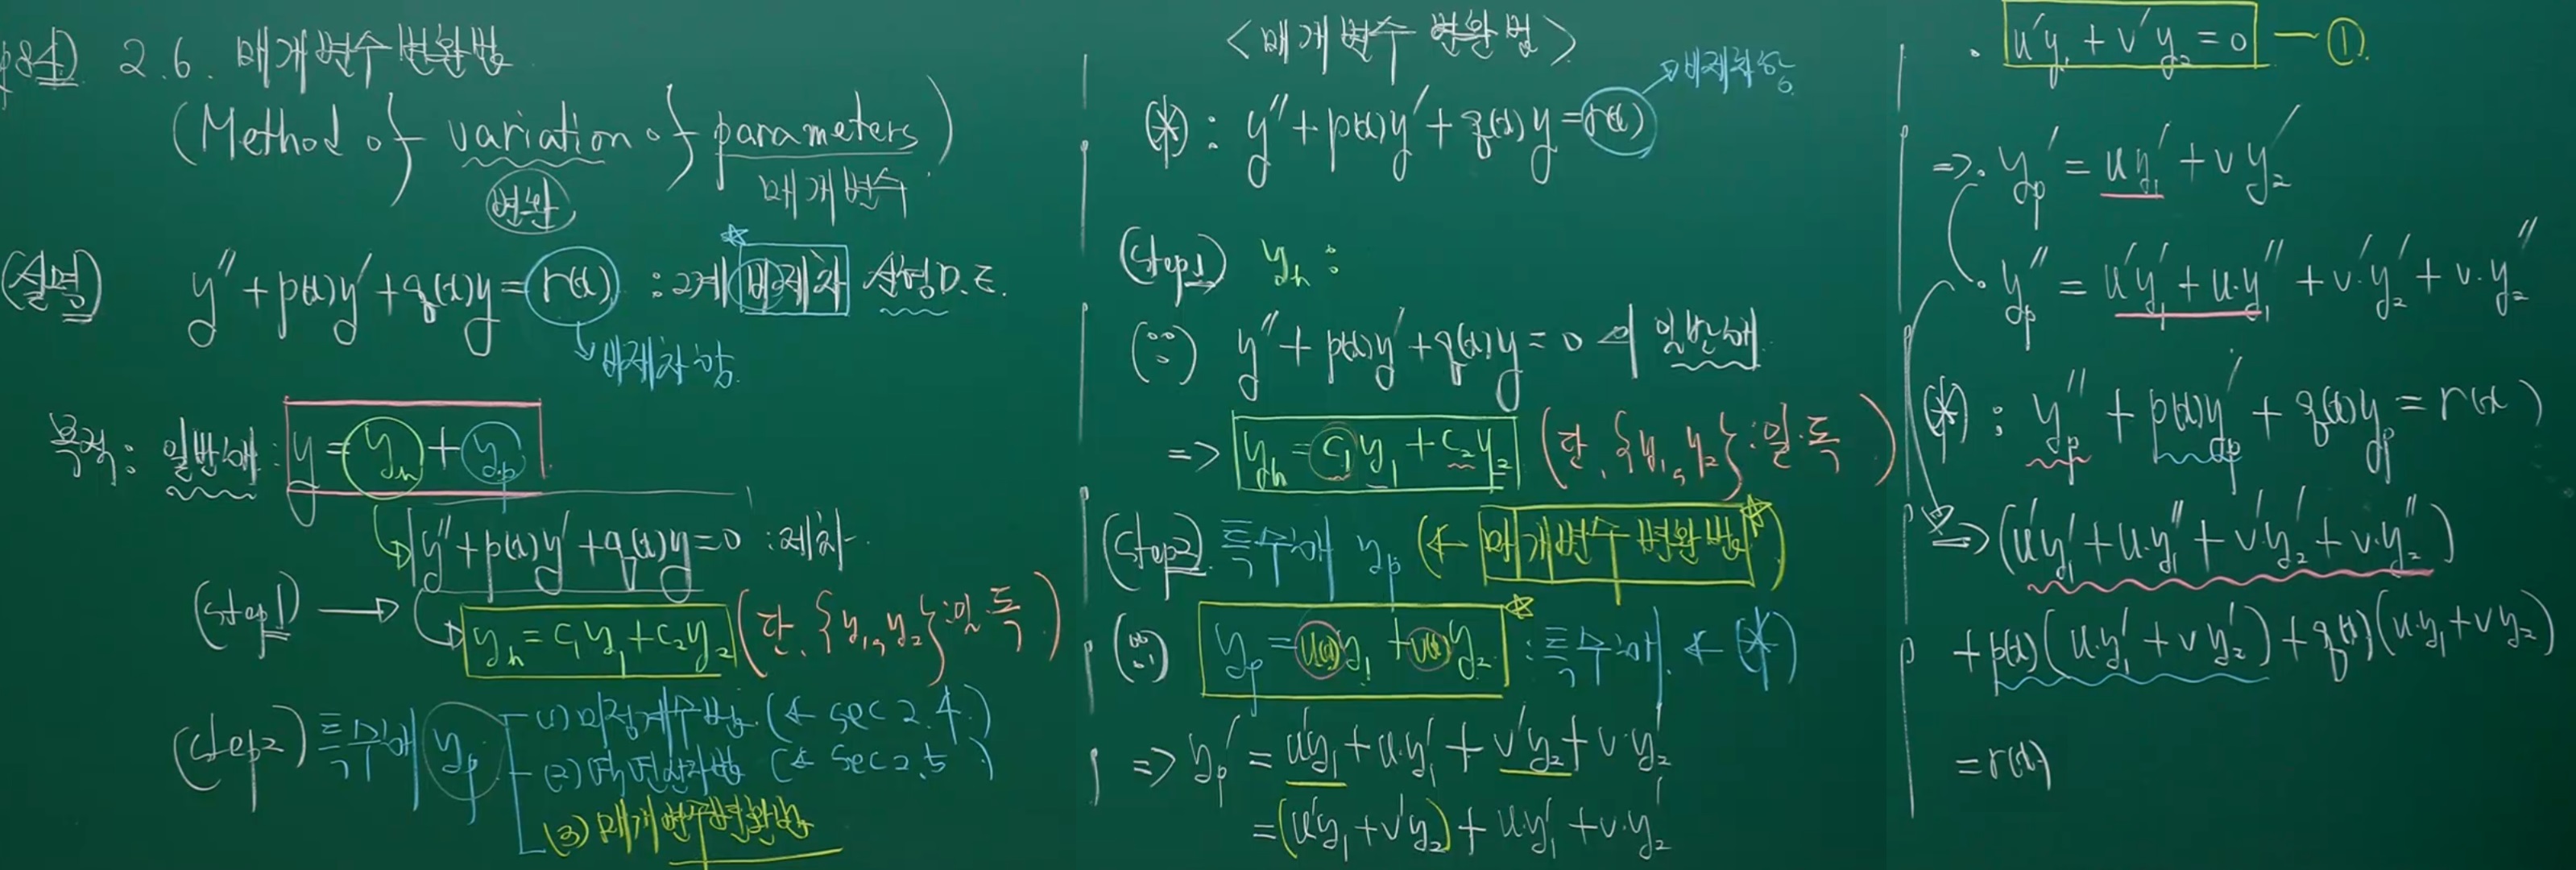 p84) 2.6. 매개변수변환법
(Method of variation of parameters)
변환 매개변수
(설명) y'' + p(x)y' + q(x)y = r(x) : 2계 비제차 선형 D.E.
비제차항
목적: 일반해: y = y_h + y_p
y'' + p(x)y' + q(x)y = 0 : 제차
(step1) → y_h = c₁y₁ + c₂y₂ (단, {y₁, y₂}: 일.독)
(step2) 특수해 y_p
(1) 미정계수법 (← sec 2.4)
(2) 역연산자법 (← sec 2.5)
(3) 매개변수변환법
<매개변수 변환법>
(*) : y'' + p(x)y' + q(x)y = r(x)
비제차항
(step1) y_h :
(∵) y'' + p(x)y' + q(x)y = 0 의 일반해
=> y_h = c₁y₁ + c₂y₂ (단, {y₁, y₂}: 일.독)
(step2) 특수해 y_p (← 매개변수 변환법)
(∵) y_p = u(x)y₁ + v(x)y₂ : 특수해. ← (*)
=> y_p' = u'y₁ + u·y₁' + v'y₂ + v·y₂'
= (u'y₁ + v'y₂) + u·y₁' + v·y₂'
· u'y₁ + v'y₂ = 0 — ①
=> · y_p' = uy₁' + vy₂'
· y_p'' = u'y₁' + u·y₁'' + v'·y₂' + v·y₂''
(*) ; y_p'' + p(x)y_p' + q(x)y_p = r(x)
=> (u'y₁' + u·y₁'' + v'·y₂' + v·y₂'')
+ p(x)(u·y₁' + vy₂') + q(x)(u·y₁ + vy₂)
= r(x)